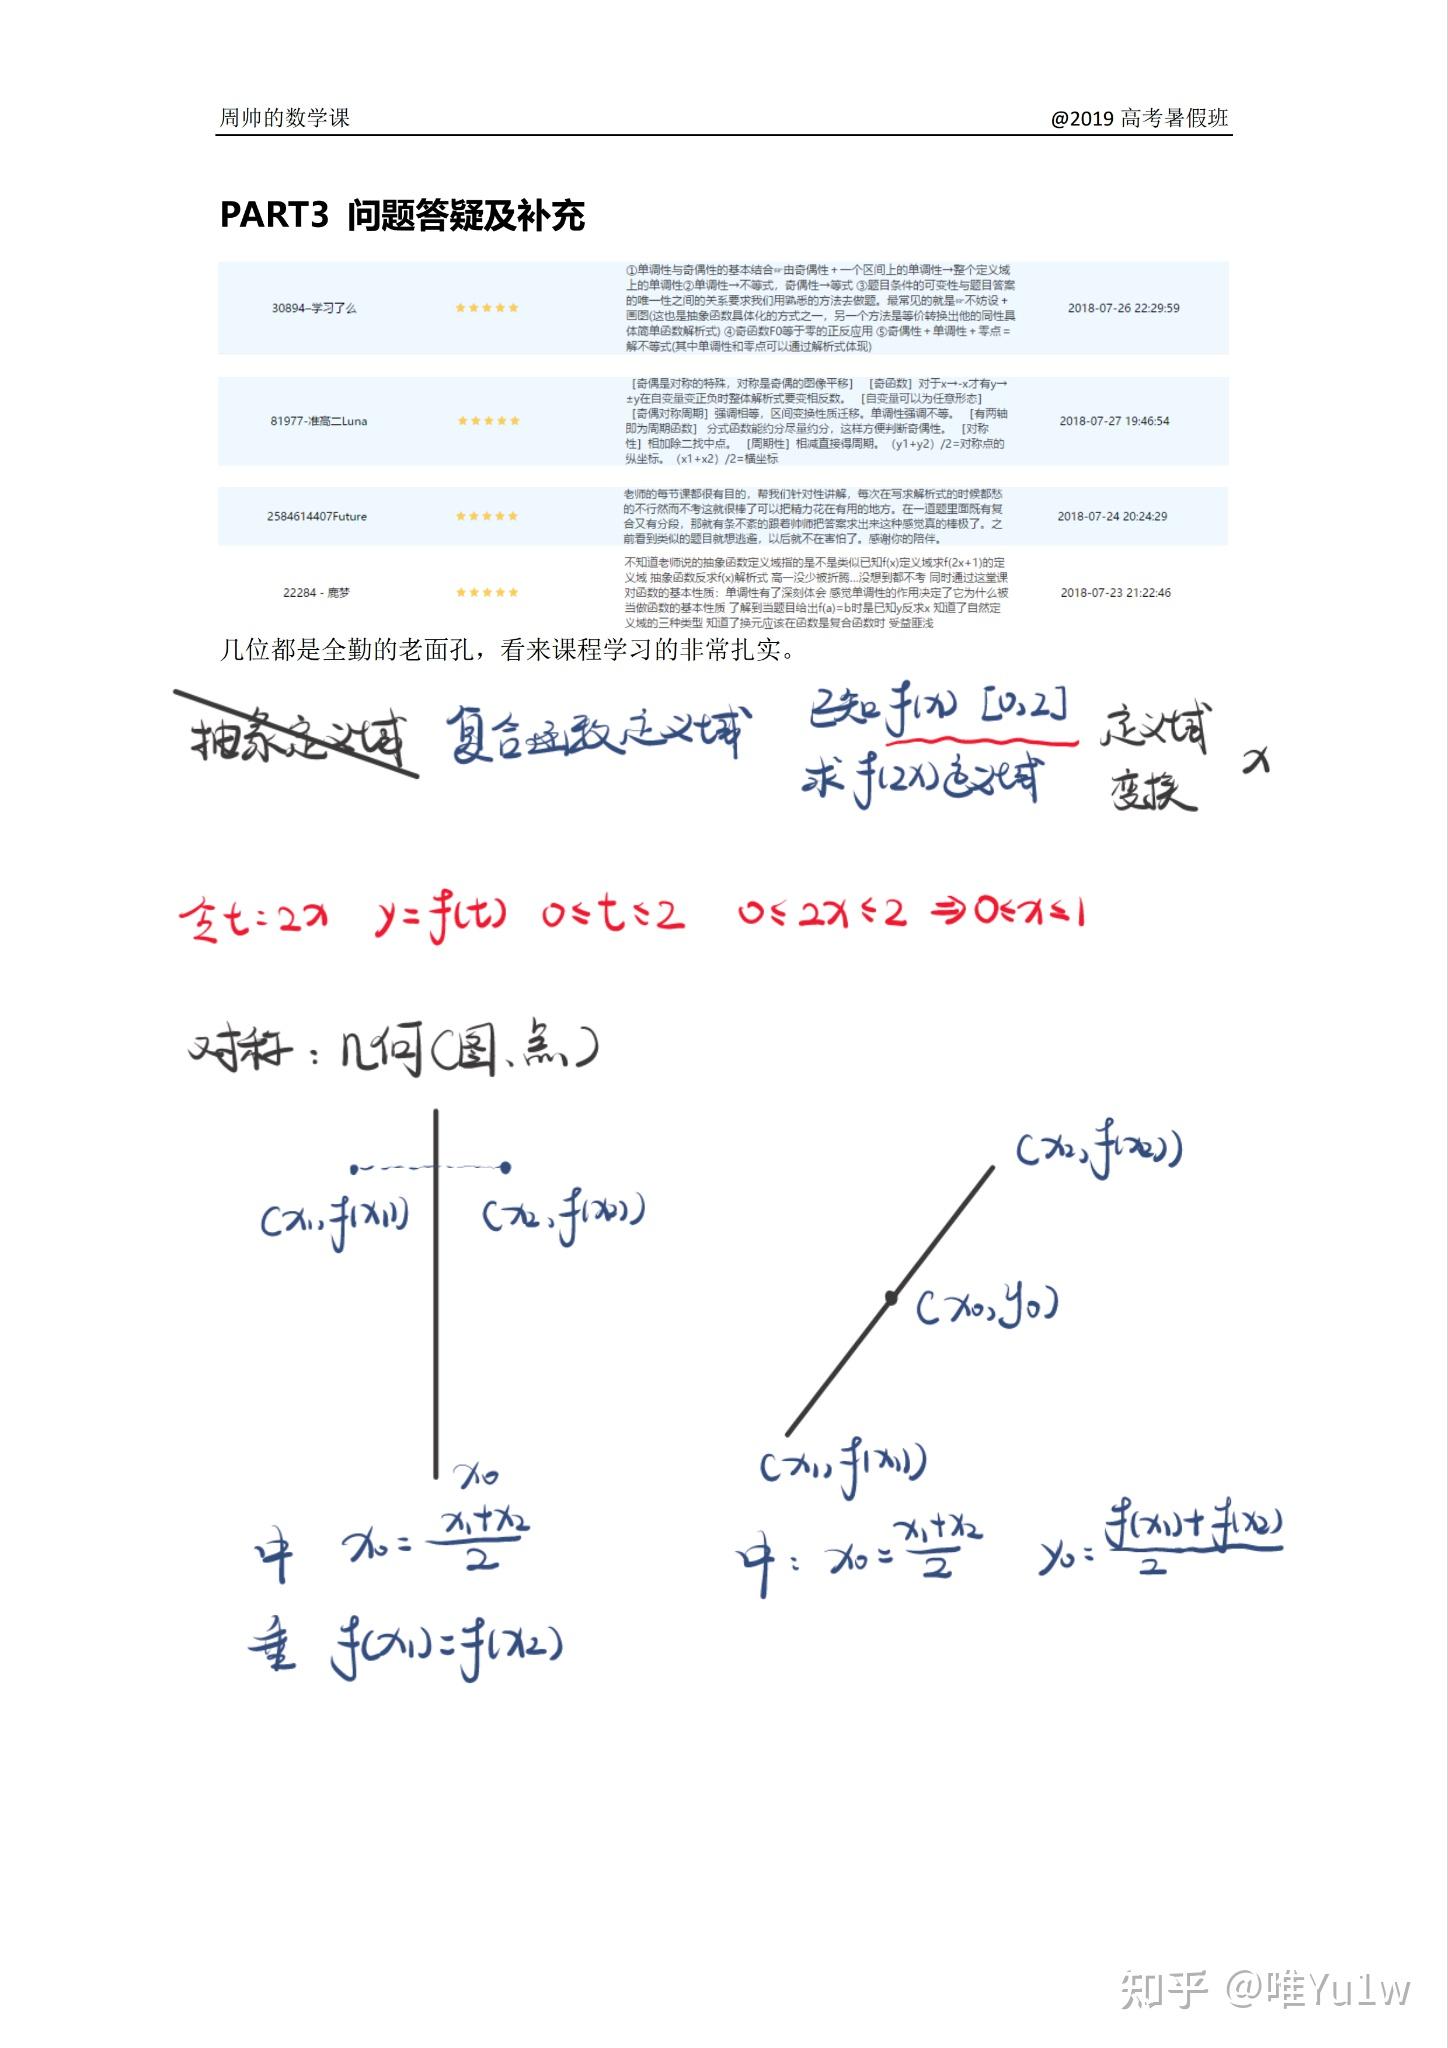 周帅的数学课 @2019 高考暑假班
PART3 问题答疑及补充
30894–学习了么 ①单调性与奇偶性的基本结合☞由奇偶性+一个区间上的单调性→整个定义域
上的单调性②单调性→不等式，奇偶性→等式 ③题目条件的可变性与题目答案
的唯一性之间的关系要求我们用熟悉的方法去做题。最常见的就是☞不妨设+
画图(这也是抽象函数具体化的方式之一，另一个方法是等价转换出他的同性具
体简单函数解析式) ④奇函数F0等于零的正反应用 ⑤奇偶性+单调性+零点=
解不等式(其中单调性和零点可以通过解析式体现)
2018-07-26 22:29:59
81977-准高二Luna [奇偶是对称的特殊，对称是奇偶的图像平移] [奇函数] 对于x→-x才有y→
±y在自变量变正负时整体解析式要变相反数。 [自变量可以为任意形态]
[奇偶对称周期] 强调相等，区间变换性质迁移。单调性强调不等。 [有两轴
即为周期函数] 分式函数能约分尽量约分，这样方便判断奇偶性。 [对称
性] 相加除二找中点。 [周期性] 相减直接得周期。 (y1+y2) /2=对称点的
纵坐标。 (x1+x2) /2=横坐标
2018-07-27 19:46:54
2584614407Future 老师的每节课都很有目的，帮我们针对性讲解，每次在写求解析式的时候都愁
的不行然而不考这就很棒了可以把精力花在有用的地方。在一道题里面既有复
合又有分段，那就有条不紊的跟着帅师把答案求出来这种感觉真的棒极了。之
前看到类似的题目就想逃避，以后就不在害怕了。感谢你的陪伴。
2018-07-24 20:24:29
22284 - 鹿梦 不知道老师说的抽象函数定义域指的是不是类似已知f(x)定义域求f(2x+1)的定
义域 抽象函数反求f(x)解析式 高一没少被折腾...没想到都不考 同时通过这堂课
对函数的基本性质：单调性有了深刻体会 感觉单调性的作用决定了它为什么被
当做函数的基本性质 了解到当题目给出f(a)=b时是已知y反求x 知道了自然定
义域的三种类型 知道了换元应该在函数是复合函数时 受益匪浅
2018-07-23 21:22:46
几位都是全勤的老面孔，看来课程学习的非常扎实。
抽象定义域 复合函数定义域 已知f(x) [0,2] 定义域 x
求f(2x)定义域 变换
令t=2x y=f(t) 0≤t≤2 0≤2x≤2 ⇒0≤x≤1
对称：几何(图、点)
(x₂,f(x₂))
(x₁,f(x₁)) (x₂,f(x₂))
(x₀,y₀)
(x₁,f(x₁))
x₀
中 x₀=(x₁+x₂)/2 中：x₀=(x₁+x₂)/2 y₀=(f(x₁)+f(x₂))/2
垂 f(x₁)=f(x₂)
知乎 @唯Yu1w